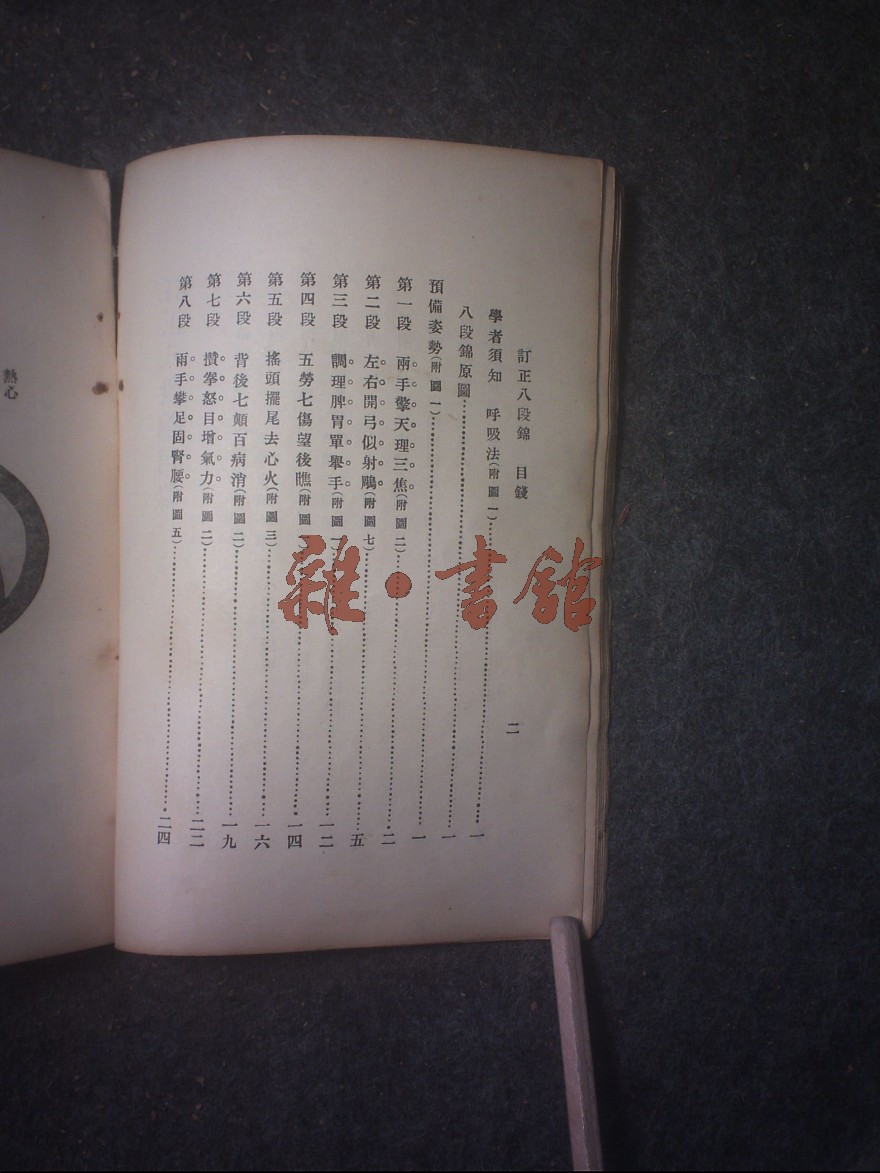 訂正八段錦 目錢
二
學者須知 呼吸法(附圖一)……一
八段錦原圖……一
預備姿勢(附圖一)……一
第一段 兩手擎天理三焦(附圖二)……二
第二段 左右開弓似射鵰(附圖七)……五
第三段 調理脾胃單舉手(附圖)……一二
第四段 五勞七傷望後瞧(附圖)……一四
第五段 搖頭擺尾去心火(附圖三)……一六
第六段 背後七顛百病消(附圖二)……一九
第七段 攢拳怒目增氣力(附圖二)……二二
第八段 兩手攀足固腎腰(附圖五)……二四
熱心
雜·書館